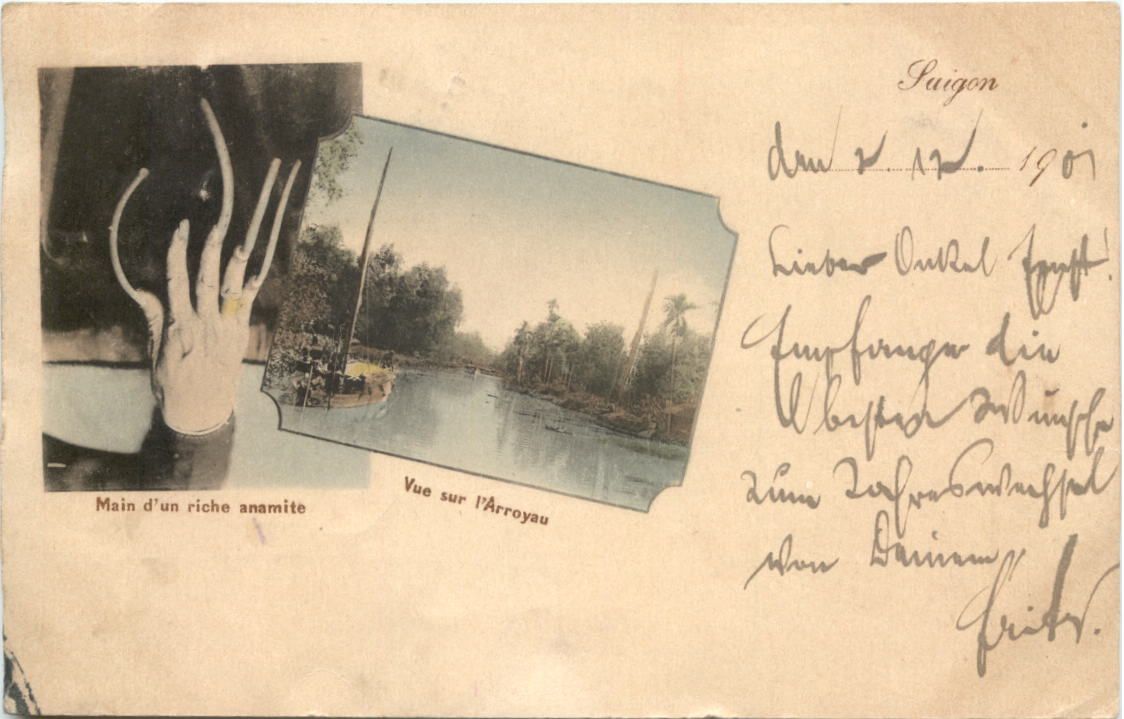 Saigon
den 2. 12. 1901
Lieber Onkel Ernst!
Empfange die
besten Wünsche
zum Jahreswechsel
von Deinem
Fritz.
Main d'un riche anamite
Vue sur l'Arroyau